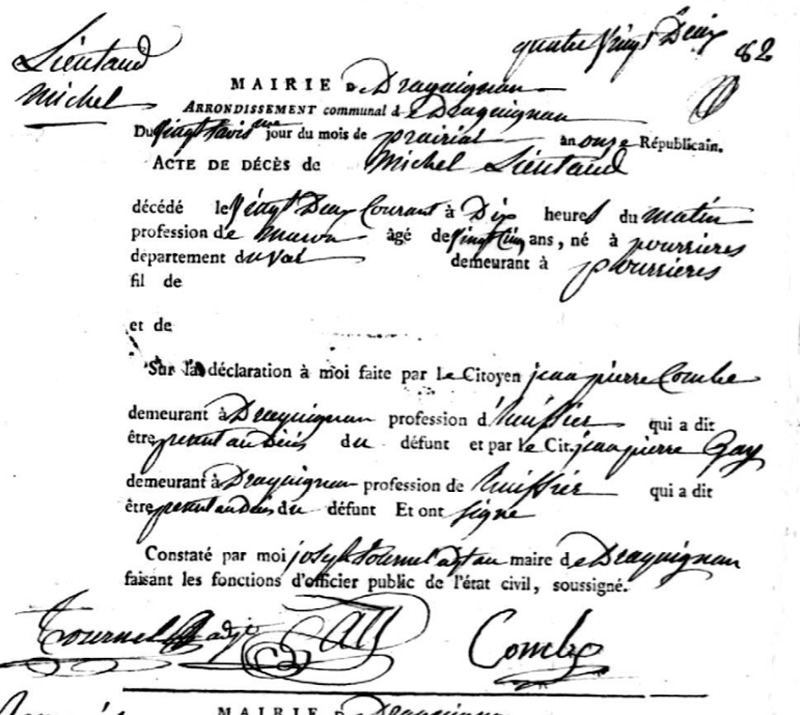 Liéutaud
Michel
quatre Vingt Deux 82
MAIRIE De Draguignan
ARRONDISSEMENT communal de Draguignan
Du Vingt trois me jour du mois de prairial an onze Républicain.
ACTE DE DÉCÈS de Michel Liéutaud
décédé le Vingt Deux Courant à Dix heures du matin
profession de Macon âgé de Vingt Cinq ans, né à pourrieres
département du Var demeurant à pourrieres
fil de
et de
Sur la déclaration à moi faite par le Citoyen jean pierre Combe
demeurant à Draguignan profession d'huissier qui a dit
être du défunt et par le Cit. jean pierre Gay
demeurant à Draguignan profession de huissier qui a dit
être du défunt Et ont signé
Constaté par moi joseph tournel adj au maire de Draguignan
faisant les fonctions d'officier public de l'état civil, soussigné.
Tournel adj Combe
MAIRIE De Draguignan